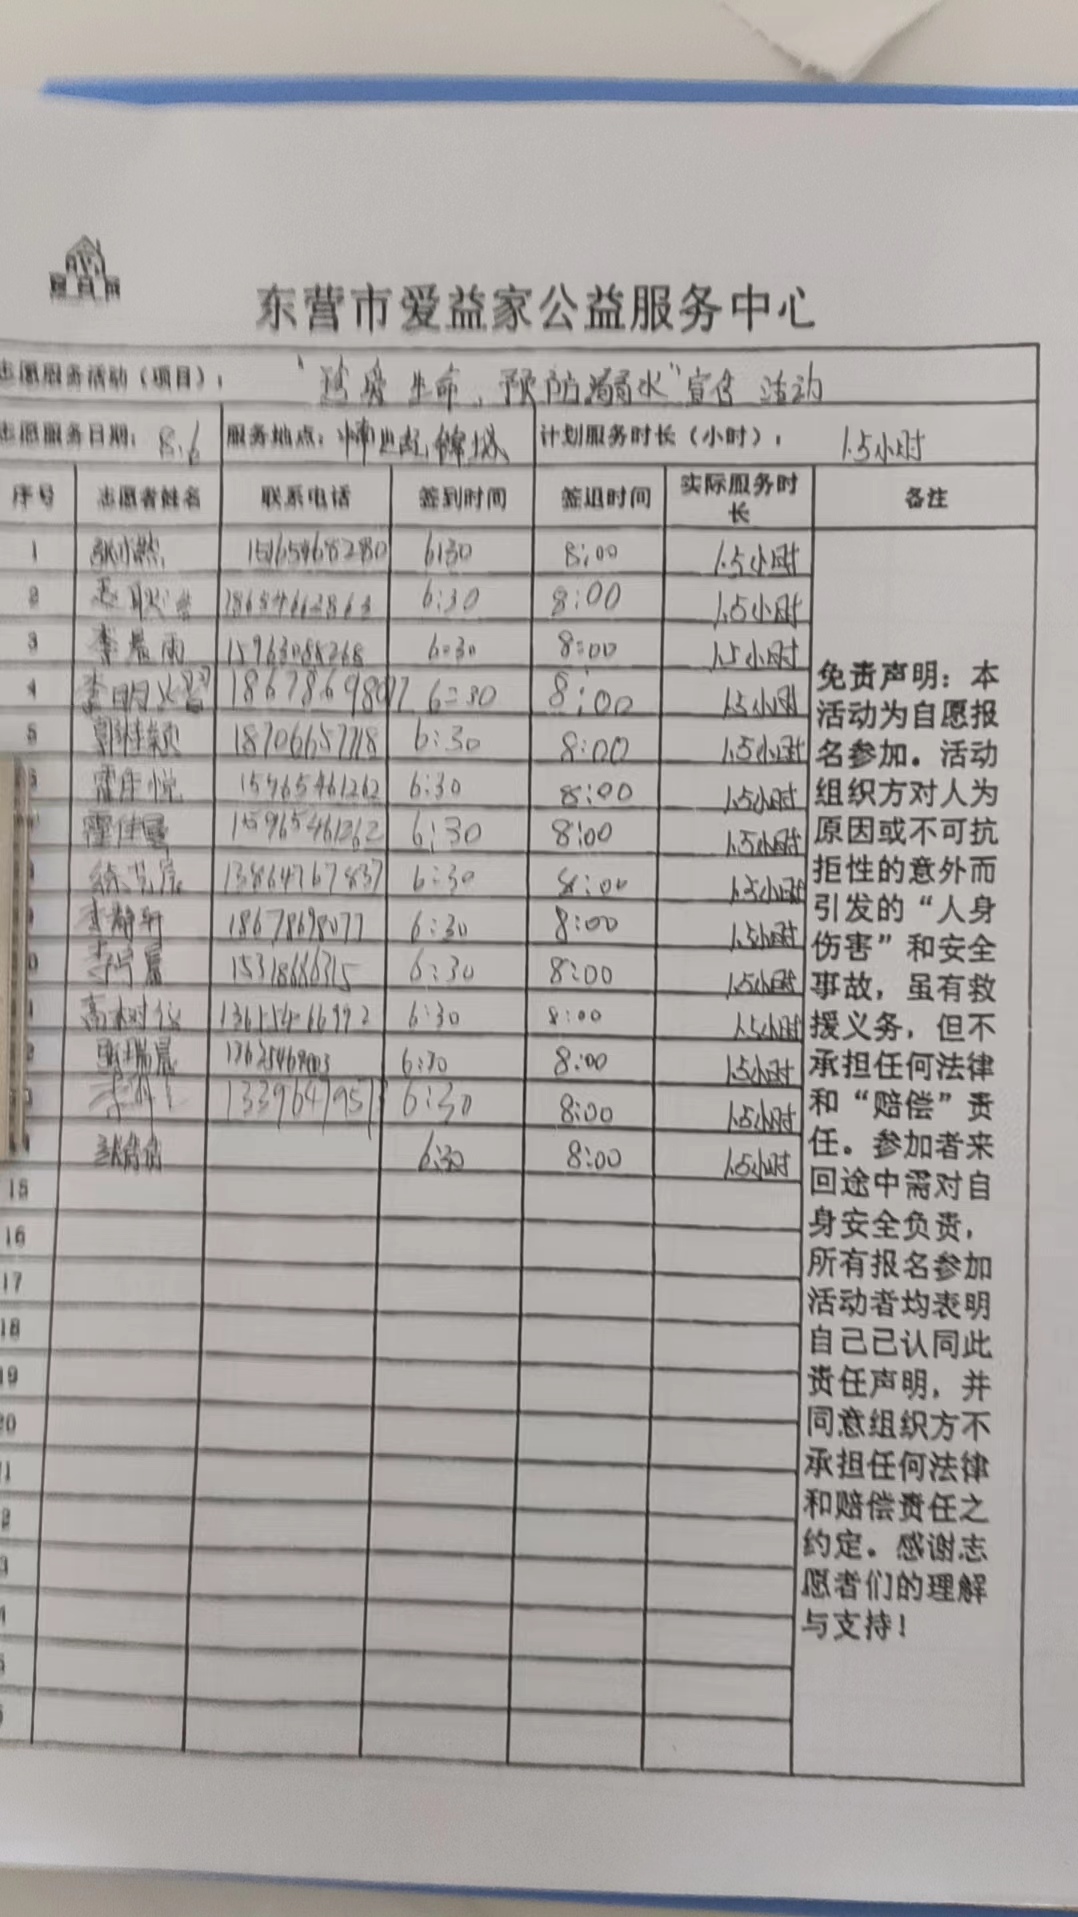 东营市爱益家公益服务中心
志愿服务活动（项目）： “珍爱生命、预防溺水”宣传活动
志愿服务日期： 8.6 服务地点： 锦城 计划服务时长（小时）： 1.5小时
序号 志愿者姓名 联系电话 签到时间 签退时间 实际服务时长 备注
1 15165468280 6:30 8:00 1.5小时
2 6:30 8:00 1.5小时
3 李晨雨 15963088268 6:30 8:00 1.5小时
4 18678698077 6:30 8:00 1.5小时
5 郭佳颖 18706657718 6:30 8:00 1.5小时
霍佳悦 15965461262 6:30 8:00 1.5小时
霍佳曼 15965461262 6:30 8:00 1.5小时
13864767837 6:30 8:00 1.5小时
李静轩 18678698077 6:30 8:00 1.5小时
6:30 8:00 1.5小时
高树仪 6:30 8:00 1.5小时
6:30 8:00 1.5小时
6:30 8:00 1.5小时
6:30 8:00 1.5小时
15
16
17
18
19
20
免责声明：本
活动为自愿报
名参加。活动
组织方对人为
原因或不可抗
拒性的意外而
引发的“人身
伤害”和安全
事故，虽有救
援义务，但不
承担任何法律
和“赔偿”责
任。参加者来
回途中需对自
身安全负责，
所有报名参加
活动者均表明
自己已认同此
责任声明，并
同意组织方不
承担任何法律
和赔偿责任之
约定。感谢志
愿者们的理解
与支持！